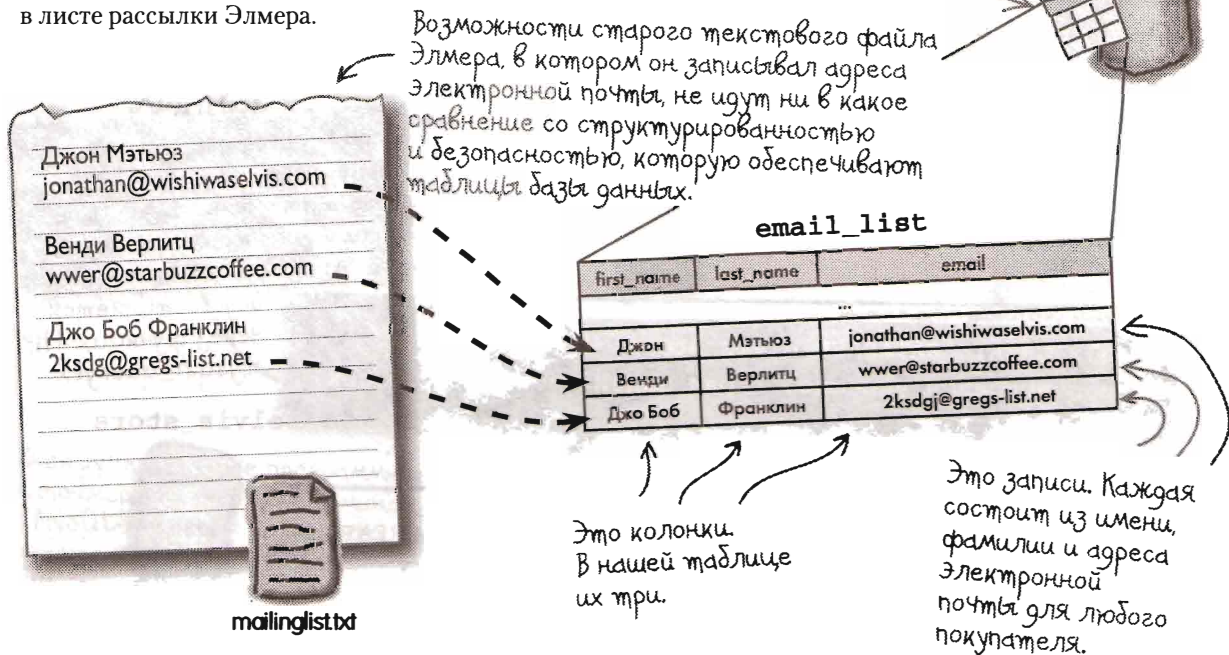 в листе рассылки Элмера.
Возможности старого текстового файла
Элмера, в котором он записывал адреса
электронной почты, не идут ни в какое
сравнение со структурированностью
и безопасностью, которую обеспечивают
таблицы базы данных.
Джон Мэтьюз
jonathan@wishiwaselvis.com
Венди Верлитц
wwer@starbuzzcoffee.com
Джо Боб Франклин
2ksdg@gregs-list.net
mailinglist.txt
email_list
first_name last_name email
...
Джон Мэтьюз jonathan@wishiwaselvis.com
Венди Верлитц wwer@starbuzzcoffee.com
Джо Боб Франклин 2ksdgj@gregs-list.net
Это колонки.
В нашей таблице
их три.
Это записи. Каждая
состоит из имени,
фамилии и адреса
электронной
почты для любого
покупателя.